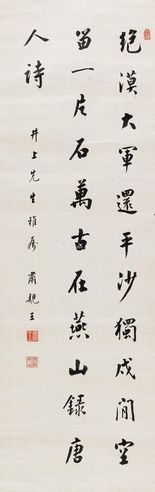 絶漠大軍還平沙獨戍閒空
留一片石萬古在燕山錄唐
人詩
井上先生雅屬
肅親王